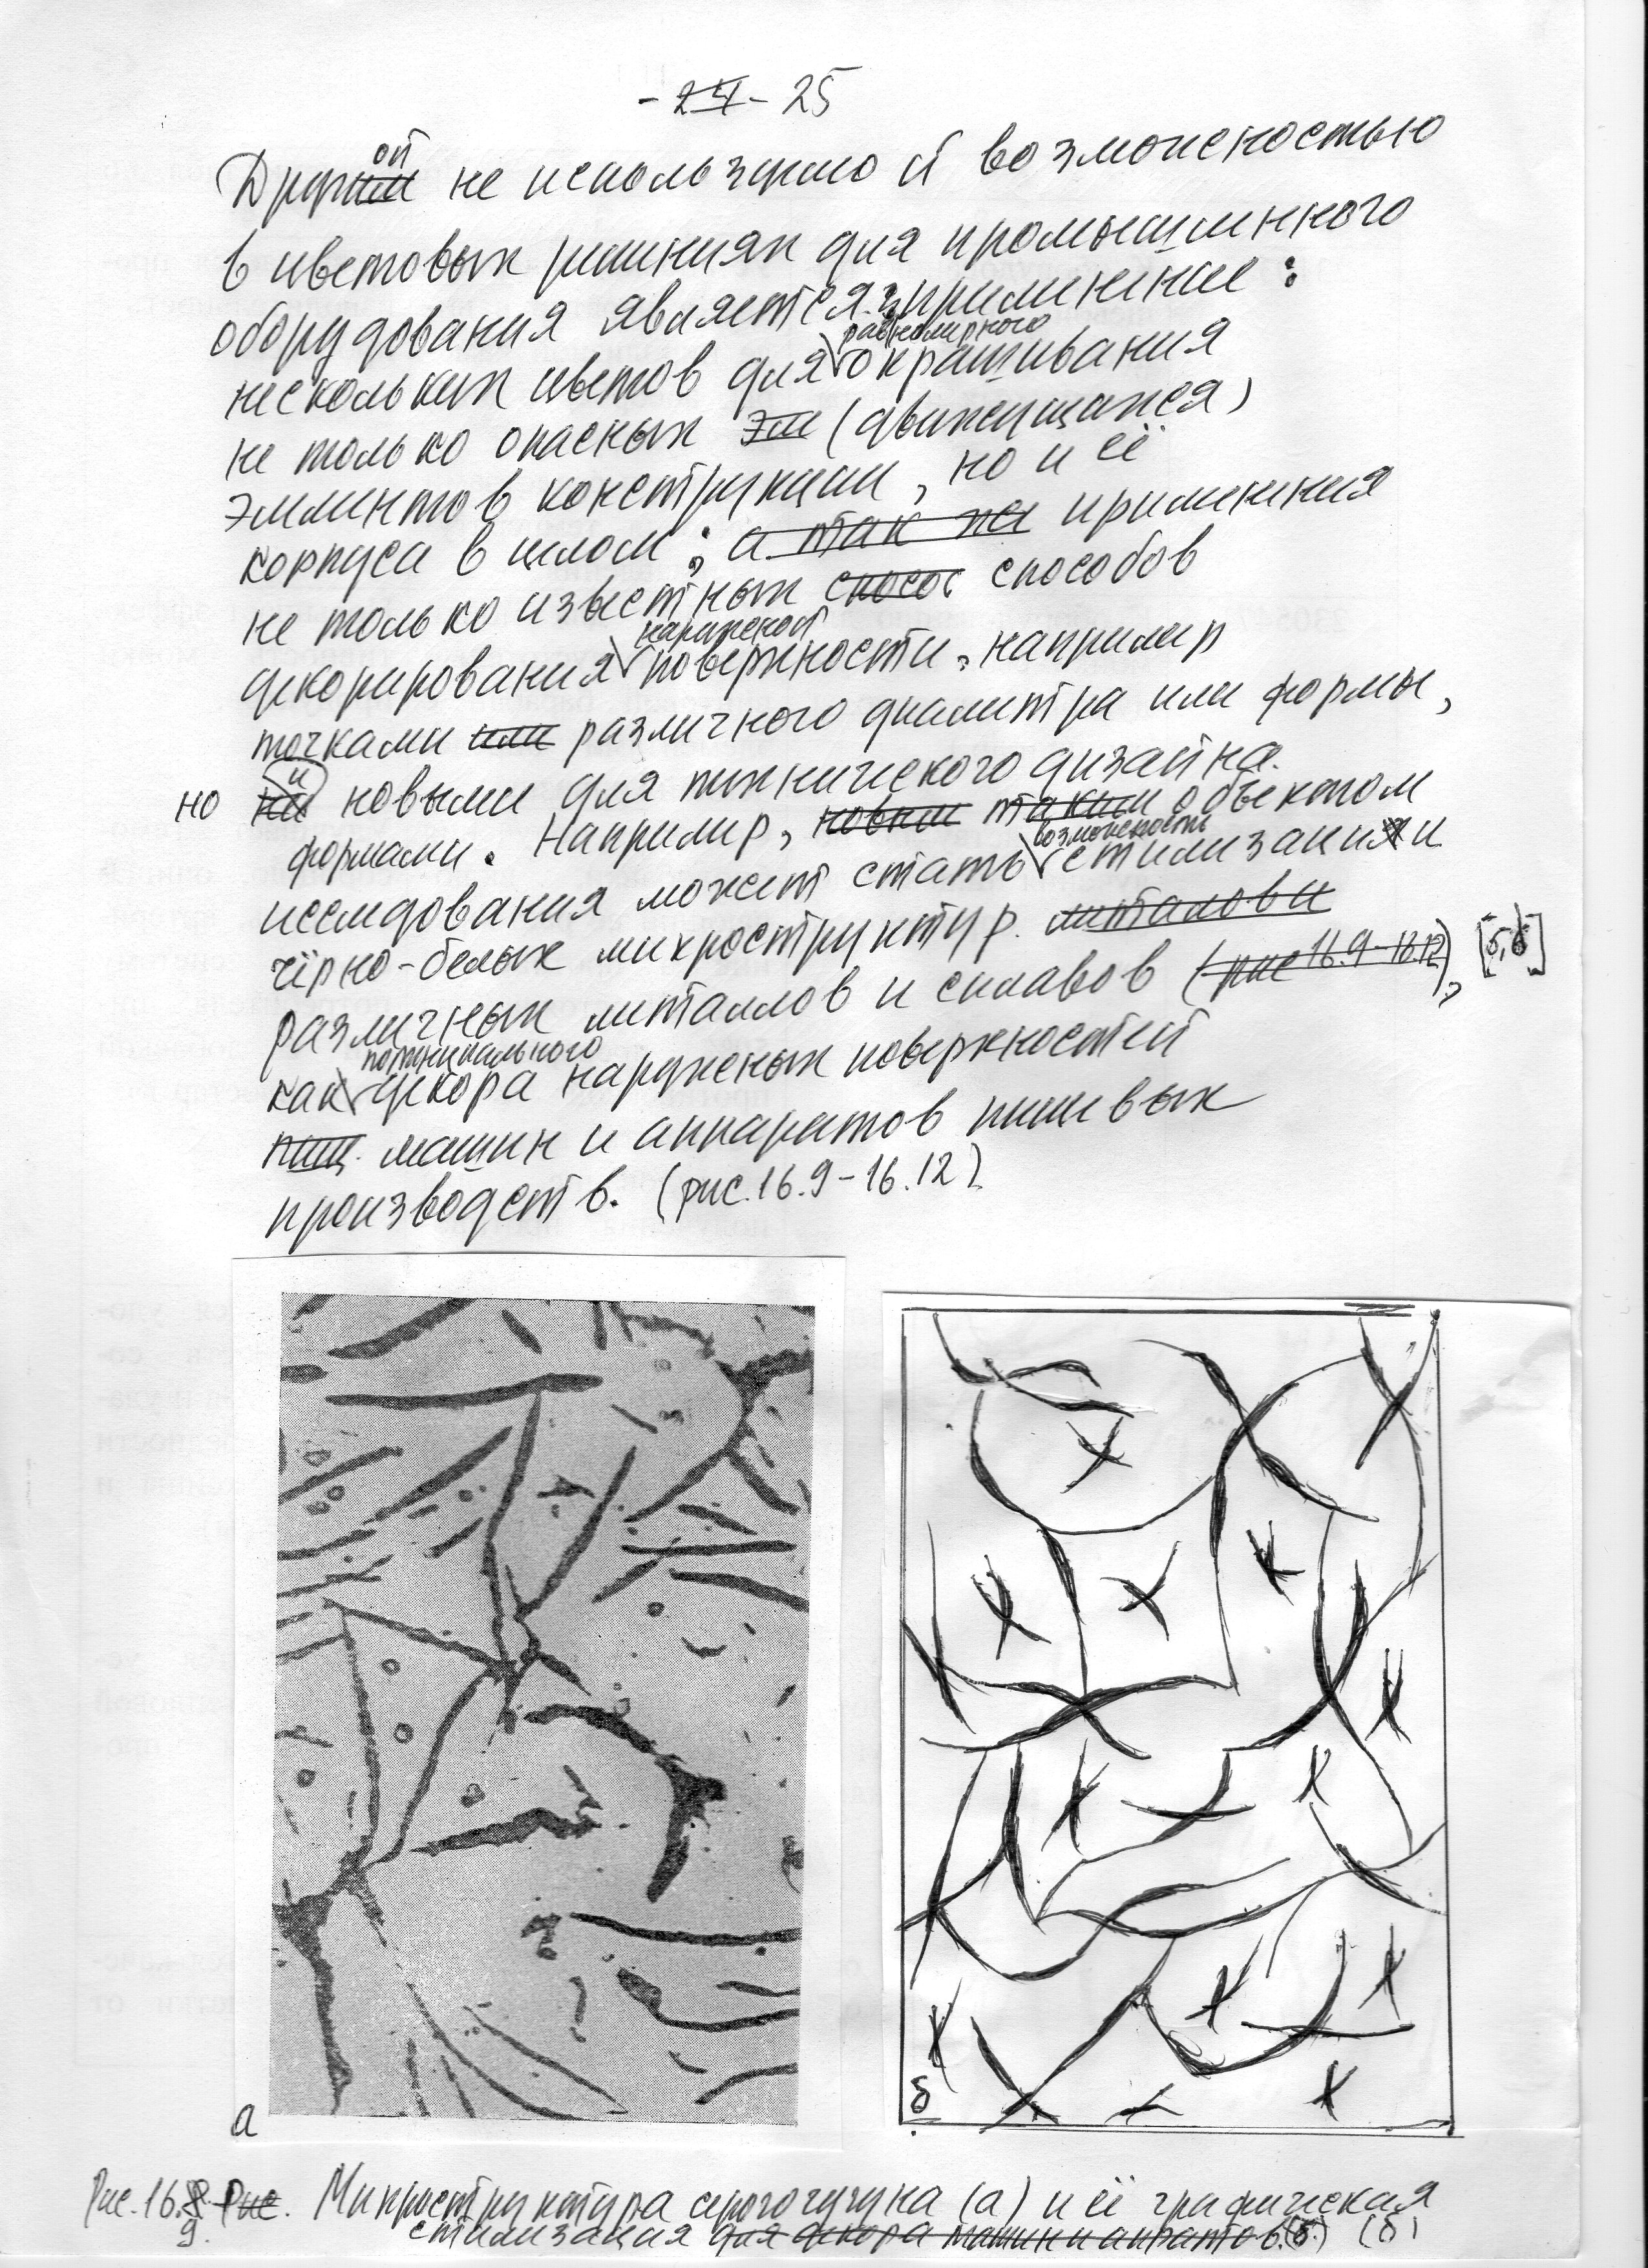 - 24 - 25
Другой не используемой возможностью
в цветовых решениях для промышленного
оборудования является: применение :
нескольких цветов для равномерного окрашивания
не только опасных эл (движущихся)
элементов конструкции, но и её
корпуса в целом; а так же применения
не только известных способ способов
декорирования наружной поверхности, например
точками или различного диаметра или формы,
но и новыми для технического дизайна
формами. Например, новым таким объектом
исследования может стать возможность стилизации
чёрно-белых микроструктур металлов и
различных металлов и сплавов (рис 16.9-16.12), [5,6]
как потенциального декора наружных поверхностей
пищ. машин и аппаратов пищевых
производств. (рис.16.9-16.12)
а
б
Рис.16.9. Рис. Микроструктура серого чугуна (а) и её графическая
стилизация для декора машин и апратов.(б.) (б)